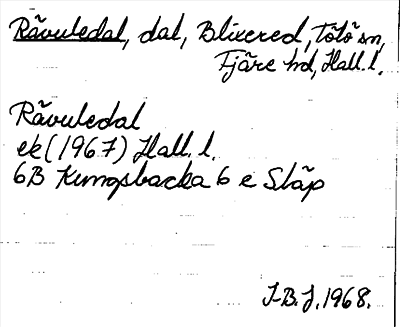 Rävuledal, dal, Blixered, Tölö sn,
Fjäre hd, Hall. l.
Rävuledal
ek (1967) Hall. l.
6B Kungsbacka 6 e Släp
J-B. J. 1968.